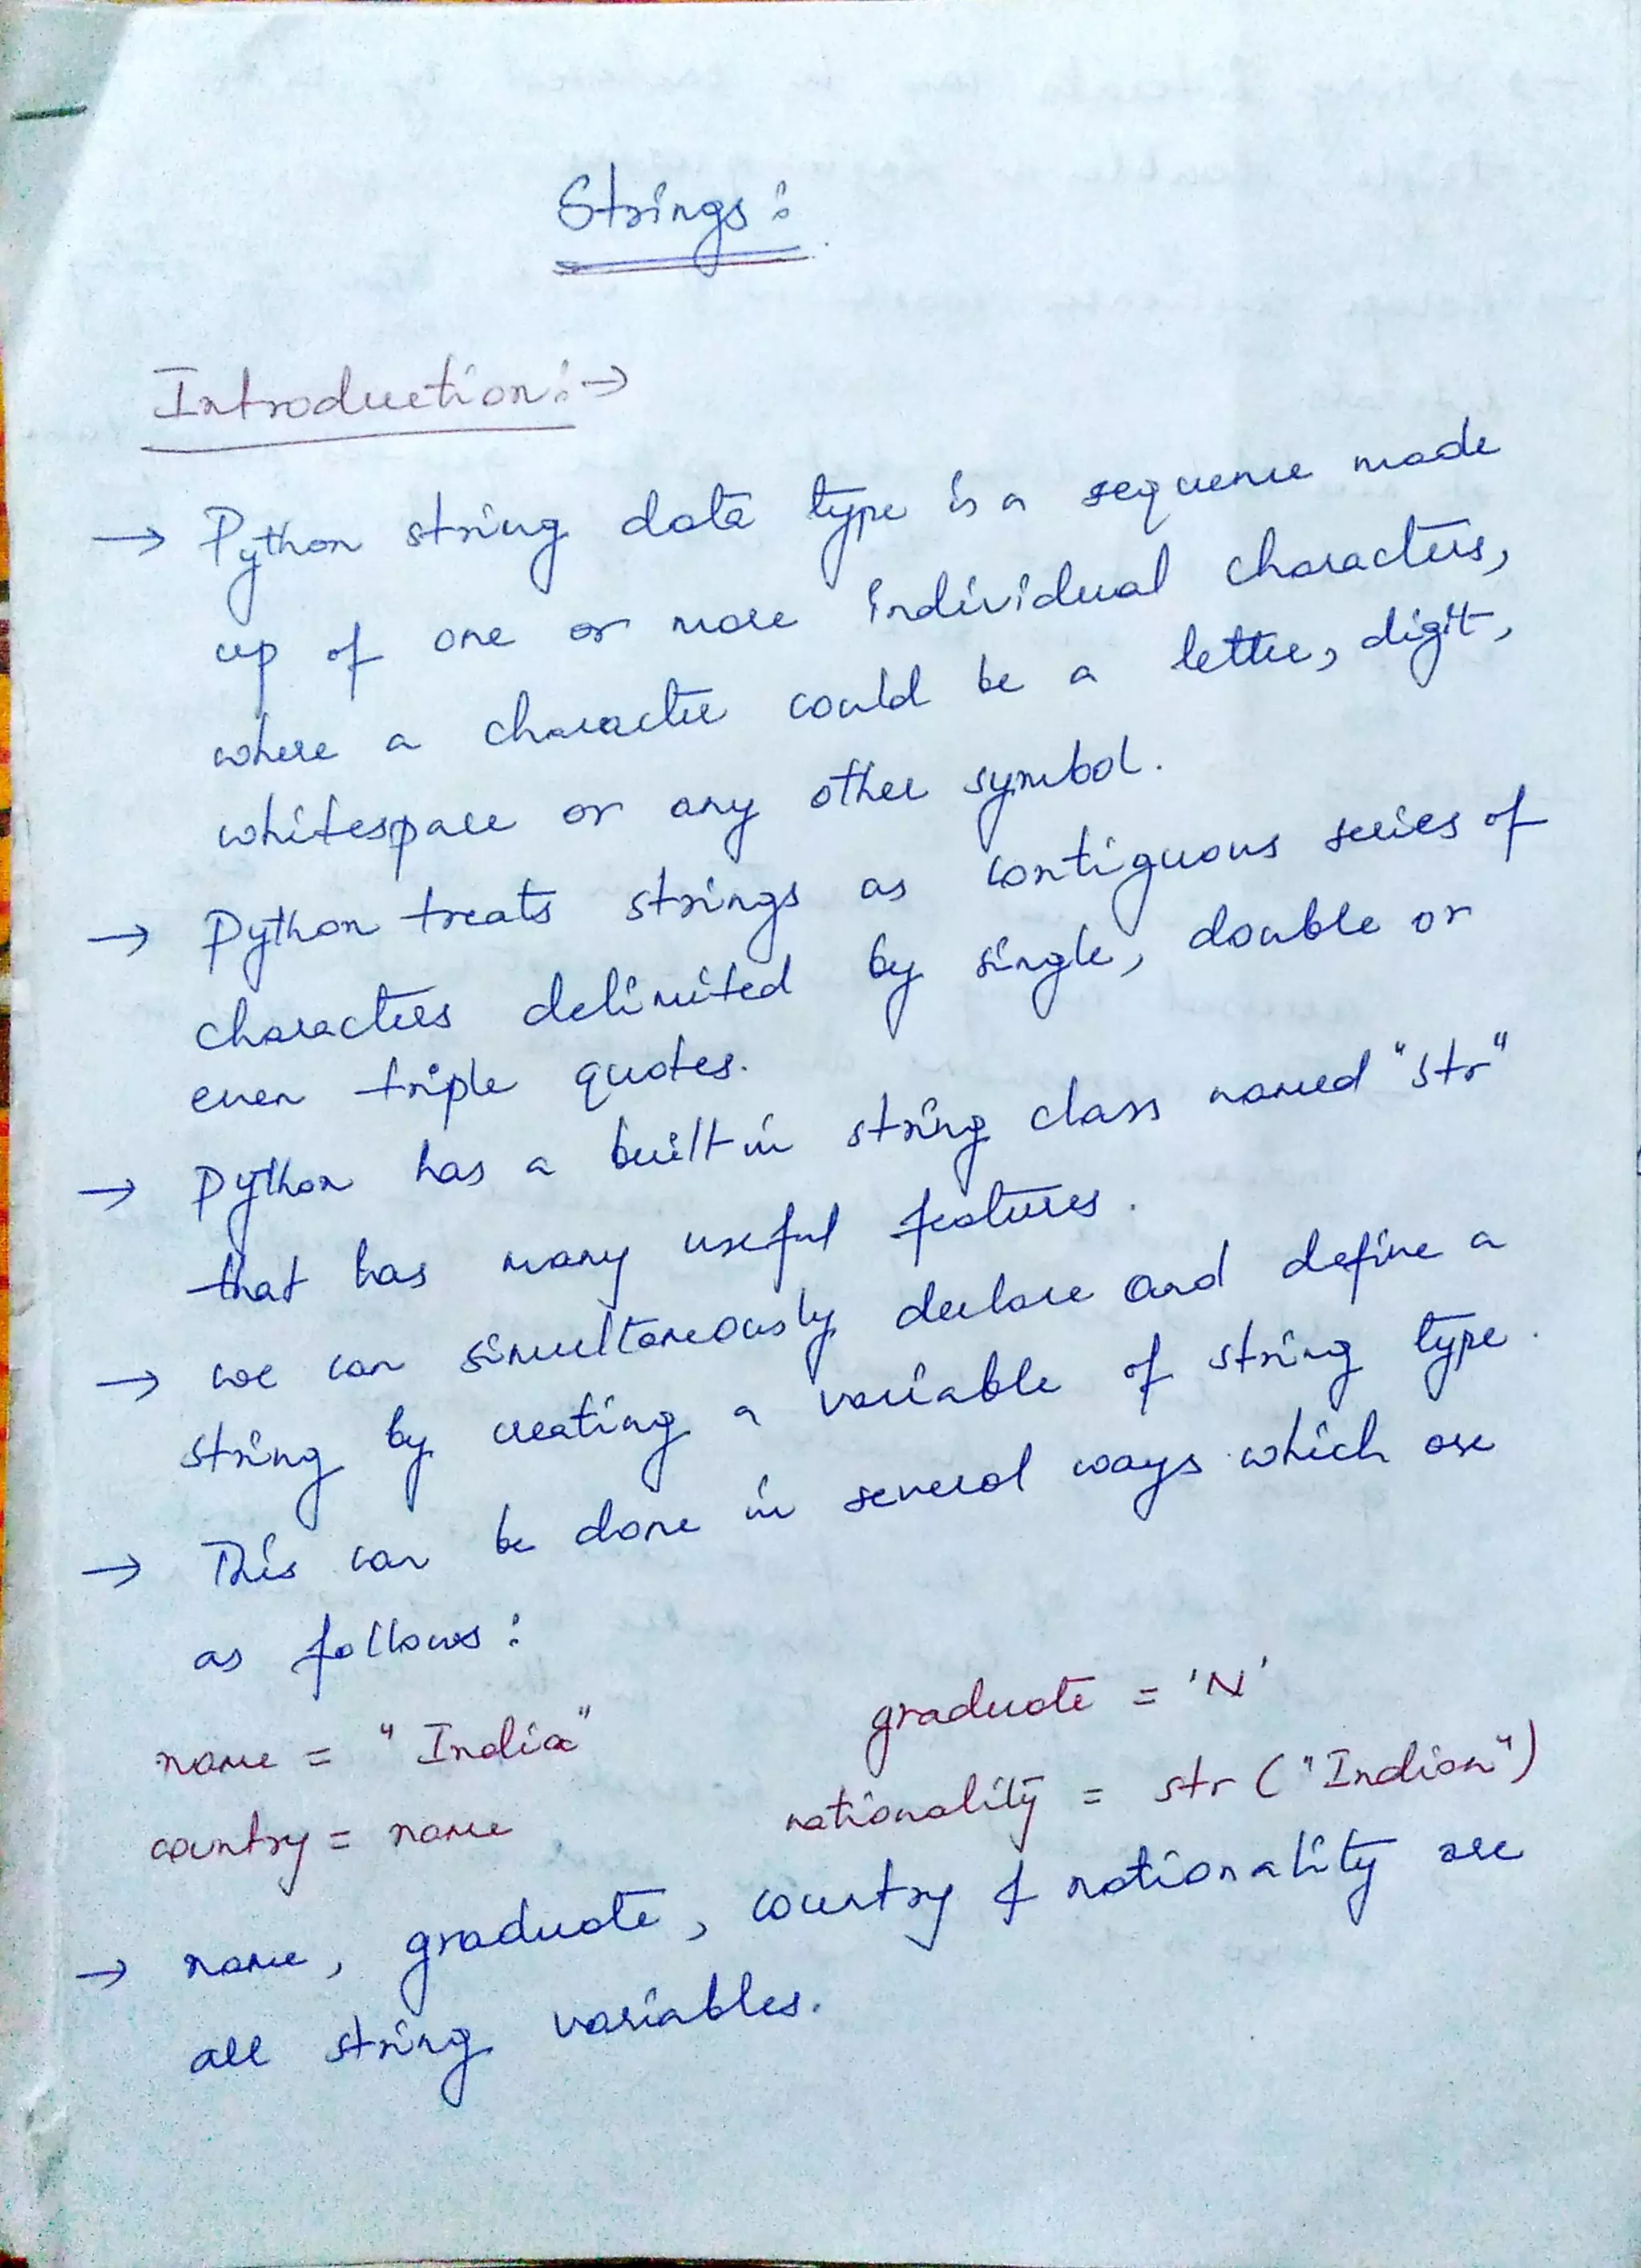 Strings:
Introduction:→
→ Python string data type is a sequence made
up of one or more individual characters,
where a character could be a letter, digit,
whitespace or any other symbol.
→ Python treats strings as contiguous series of
characters delimited by single, double or
even triple quotes.
→ Python has a built in string class named "str"
that has many useful features.
→ we can simultaneously declare and define a
string by creating a variable of string type.
→ This can be done in several ways which are
as follows:
name = "India" graduate = 'N'
country = name nationality = str ("Indian")
→ name, graduate, country & nationality are
all string variables.